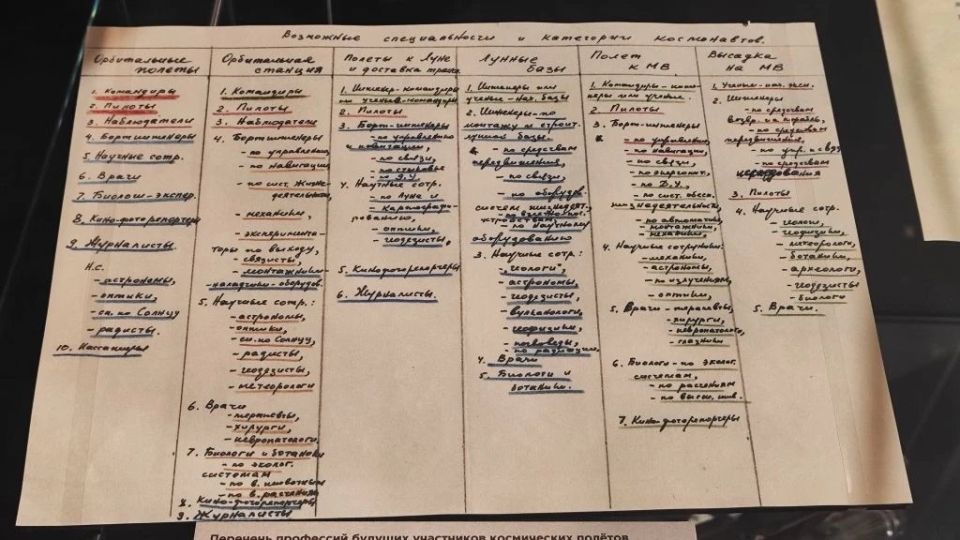 Возможные специальности и категории космонавтов.
Орбитальные
полеты
1. Командиры
2. Пилоты
3. Наблюдатели
4. Бортинженеры
5. Научные сотр.
6. Врачи
7. Биологи-экспер.
8. Кино-фоторепортеры
9. Журналисты.
Н.С.
- астрономы,
- оптики,
- сп. по Солнцу
- радисты.
10. Пассажиры
Орбитальная
станция
1. Командиры
2. Пилоты
3. Наблюдатели
4. Бортинженеры
- по управлению,
- по навигации,
- по сист. жизне-
деятельности,
- механики,
- эксперимента-
торы по выходу,
- связисты,
- монтажники-
наладчики оборудов.
5. Научные сотр.:
- астрономы,
- оптики,
- сп. по Солнцу,
- радисты,
- геодезисты,
- метеорологи
6. Врачи
- терапевты,
- хирурги,
- невропатологи.
7. Биологи и ботаники
- по эколог.
системам
- по в. животным
- по в. растениям
8. Кино-фоторепортеры
9. Журналисты
Полеты к Луне
и доставка груза
1. Инженер-командиры
или ученые-командиры
2. Пилоты
3. Борт-инженеры
- по управлению
и навигации,
- по связи,
- по Д.У.
4. Научные сотр.
- по Луне и
картографи-
рованию,
- оптики,
- геодезисты,
5. Кинофоторепортеры
6. Журналисты.
Лунные
базы
1. Инженеры или
ученые - нач. базы
2. Инженеры - по
монтажу и строит.
лунной базы,
- по средствам
передвижения,
- по связи,
- по оборудов.
систем жизнедеят.
- по научному
оборудованию
3. Научные сотр:
- геологи,
- астрономы,
- геодезисты,
- вулканологи,
- геофизики,
- почвоведы,
- по радиации.
4. Врачи
5. Биологи и
ботаники.
Полет
к МВ
1. Командиры-инже-
неры или ученые.
2. Пилоты
3. Борт-инженеры
- по управлению,
- по навигации,
- по связи,
- по энергопит.
- по Д.У.,
- по сист. обесп.
жизнедеятельности,
- по автоматике,
- монтажники,
- механики
4. Научные сотрудники:
- механики,
- астрономы,
- по излучениям,
- оптики,
5. Врачи - терапевты,
- хирурги,
- невропатологи,
- глазники
6. Биологи - по эколог.
системам,
- по растениям
- по высш. жив.
7. Кино-фоторепортеры
Высадка
на МВ
1. Ученые - нач. эксп.
2. Инженеры
- по средствам
возвр. на корабль,
- по средствам
передвижения,
- по упр. и связи
- по средствам
исследования
3. Пилоты
4. Научные сотр.
- геологи,
- геофизики,
- метеорологи,
- ботаники,
- археологи,
- геодезисты
- биологи
5. Врачи.
Перечень профессий будущих участников космических полётов